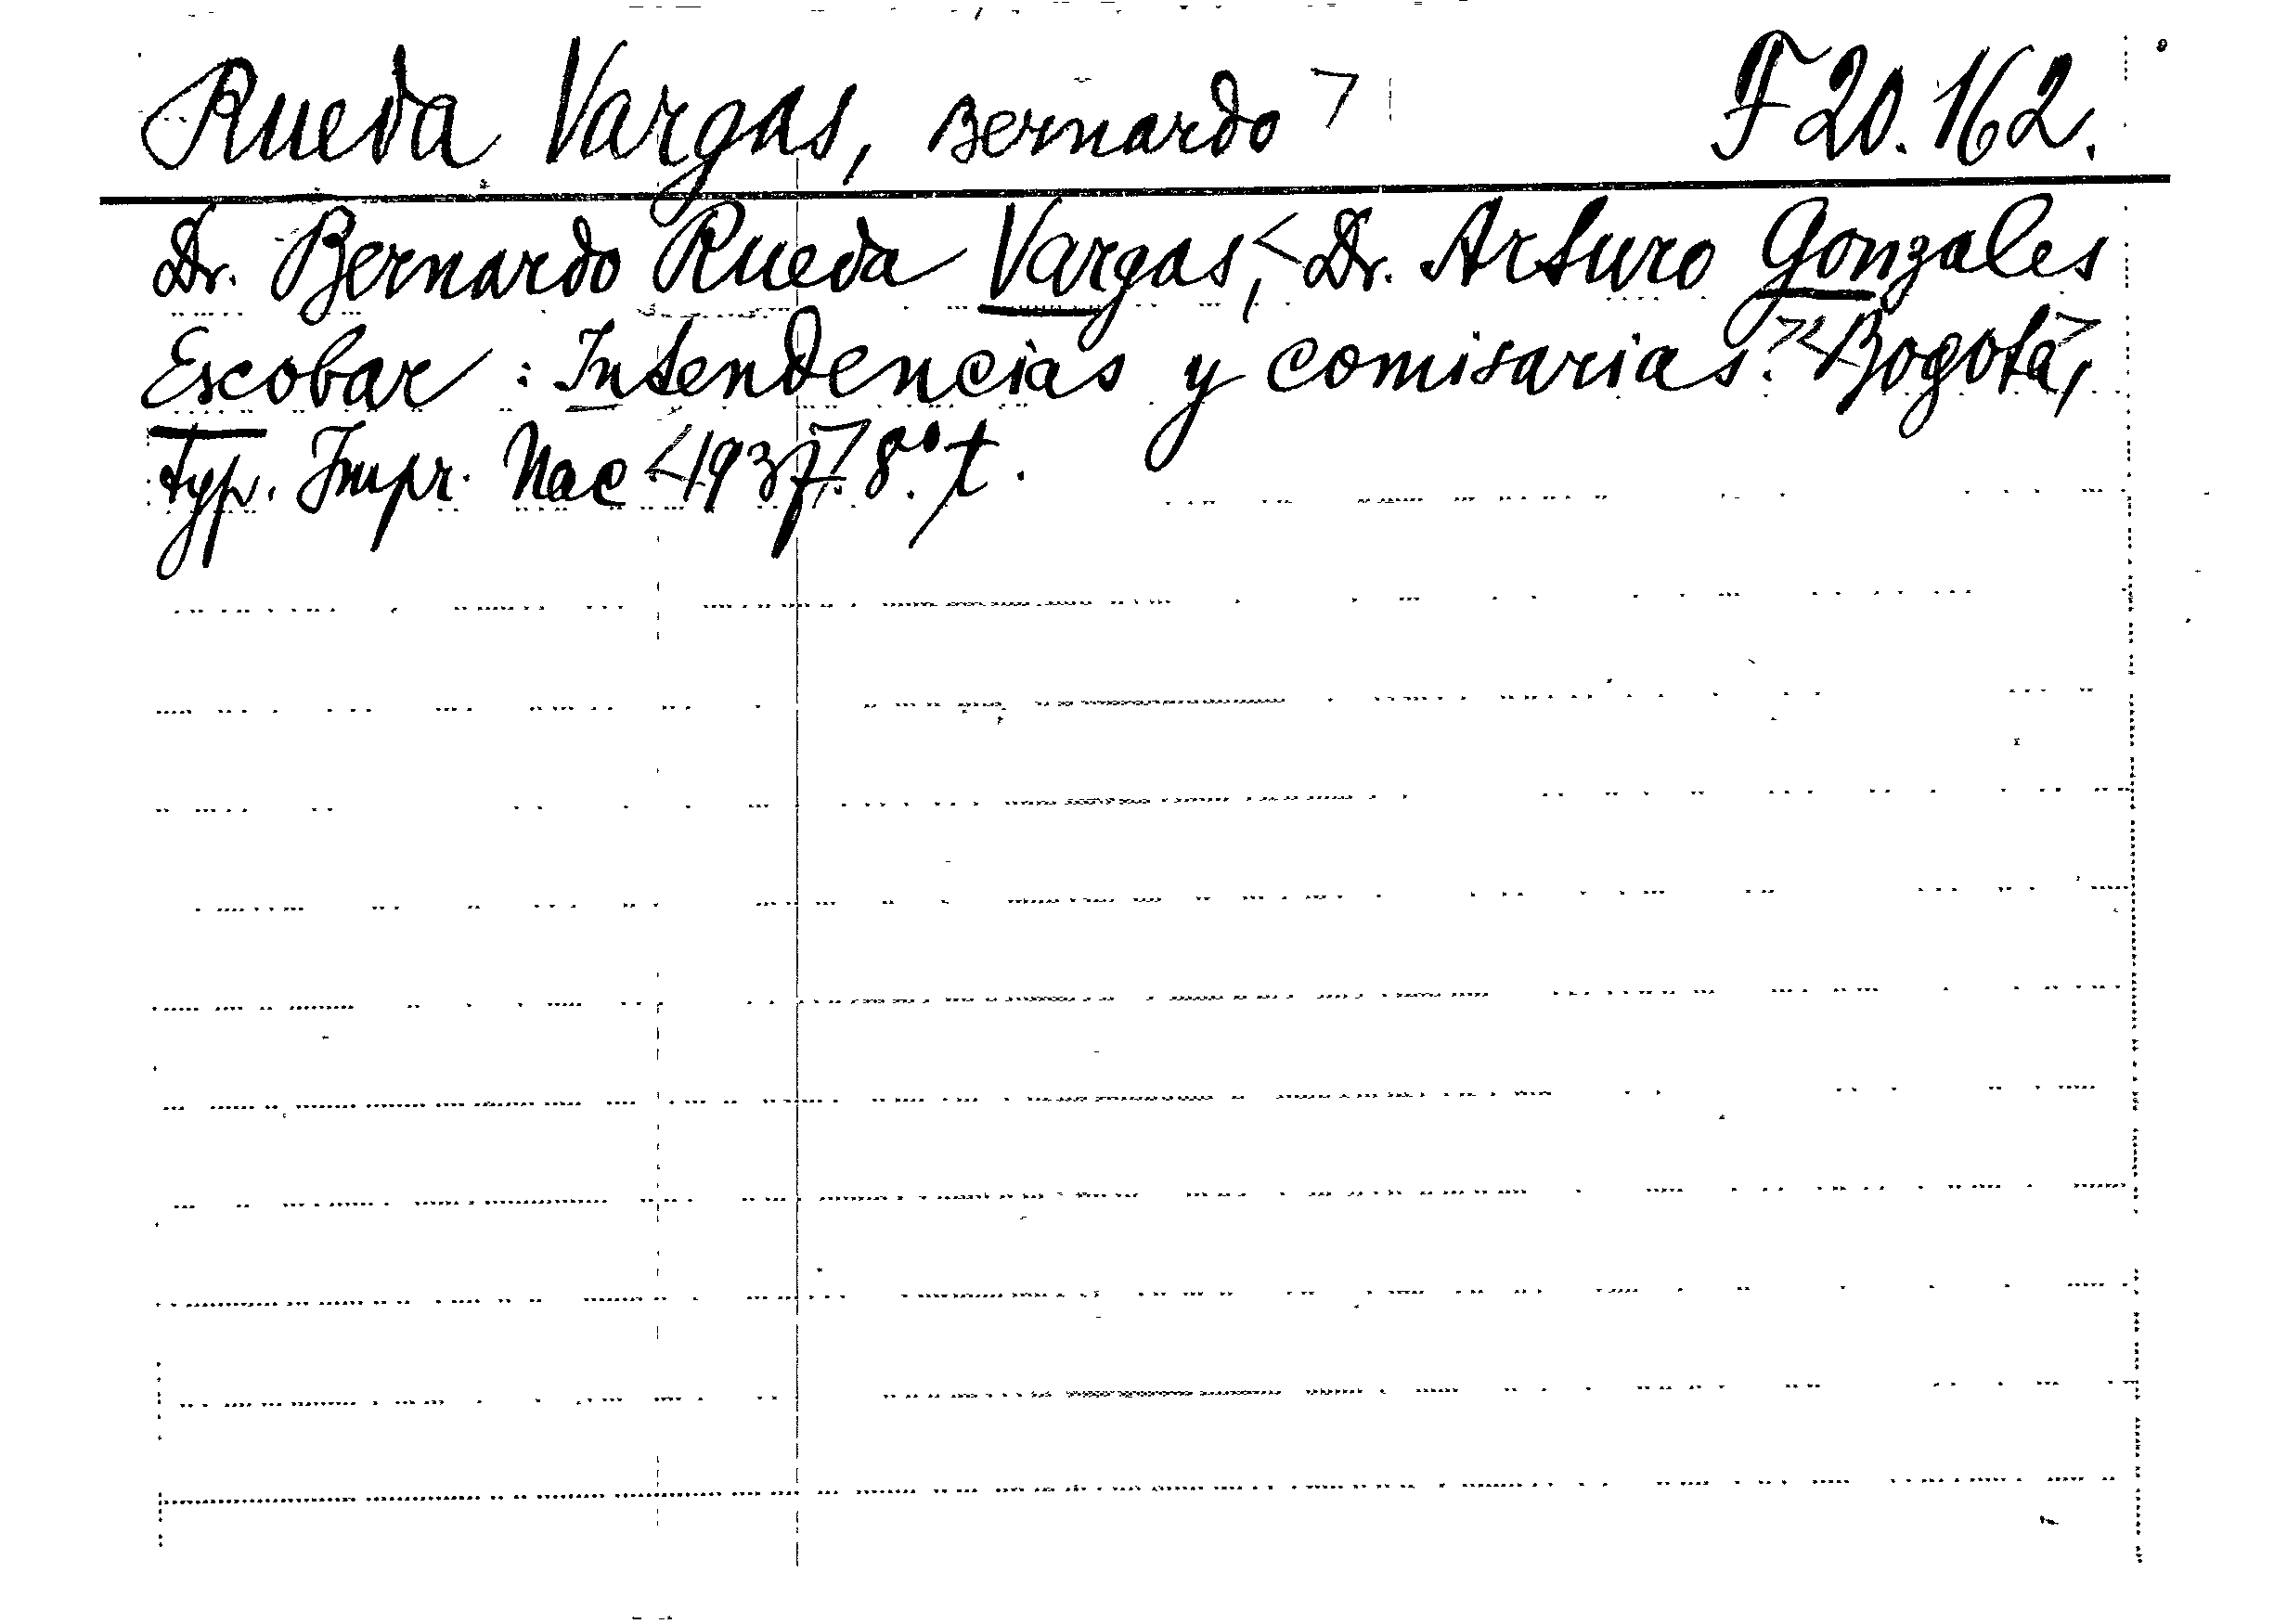 Rueda Vargas, Bernardo > F 20.162.
Dr. Bernardo Rueda Vargas, < Dr. Arturo Gonzales
Escobar : Intendencias y comisarias. > < Bogotá, >
typ. Impr. Nac < 1937. > 8.° t.